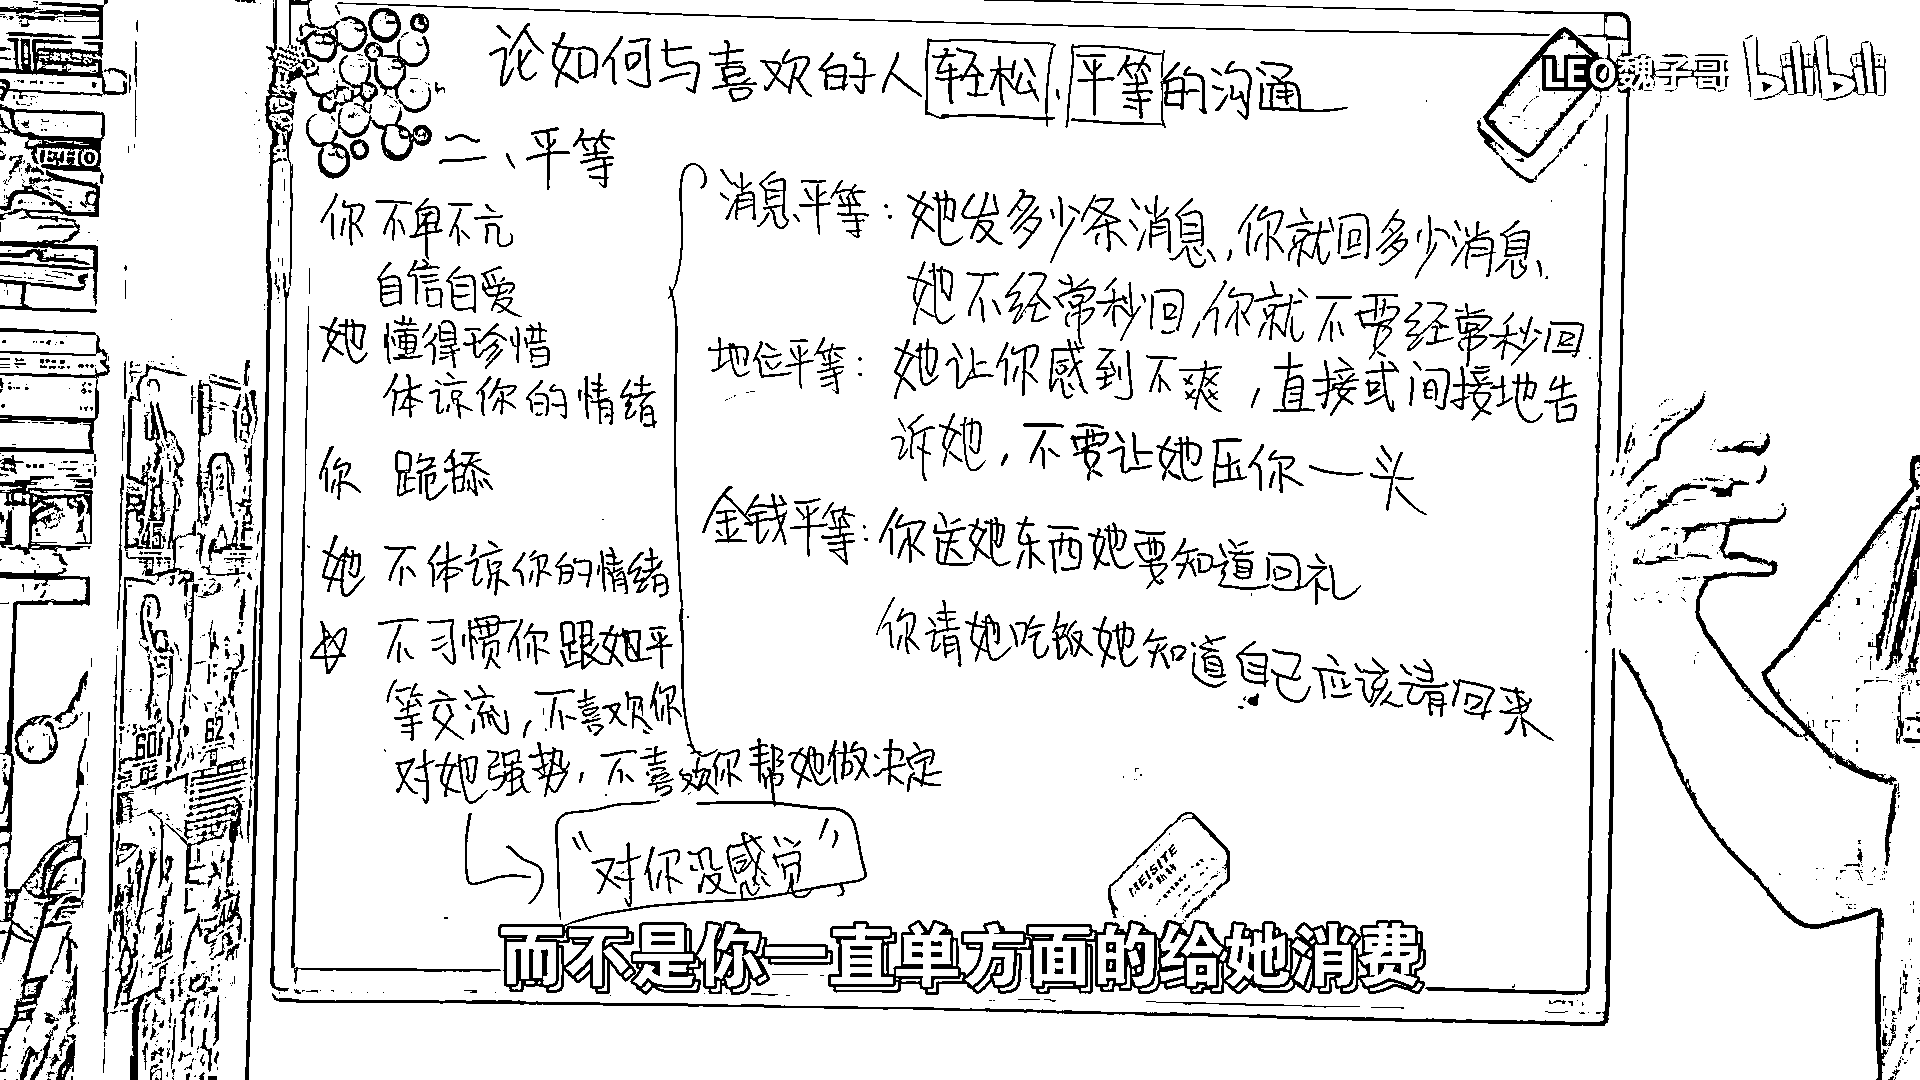 论如何与喜欢的人轻松、平等的沟通
LEO魏子哥 bilibili
二、平等
你 不卑不亢
自信自爱
她 懂得珍惜
体谅你的情绪
你 跪舔
她 不体谅你的情绪
☆ 不习惯你跟她平
等交流，不喜欢你
对她强势，不喜欢你帮她做决定
“对你没感觉”
消息平等：她发多少条消息，你就回多少消息、
她不经常秒回，你就不要经常秒回
地位平等：她让你感到不爽，直接或间接地告
诉她，不要让她压你一头
金钱平等：你送她东西她要知道回礼
你请她吃饭她知道自己应该请回来
MEISITE
而不是你一直单方面的给她消费
60
62